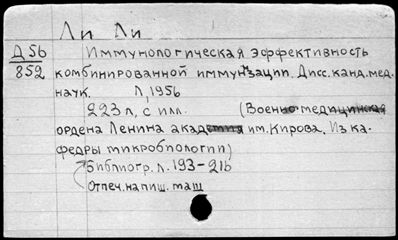 Ли Ли
Д 56
852
Иммунологическая эффективность
комбинированной иммунизации. Дисс. канд. мед.
наук. Л, 1956
223 л, с илл. (Военно-медицинская
ордена Ленина академия им. Кирова. Из ка-
федры микробиологии)
Библиогр. л. 193-216
Отпеч. на пиш. маш